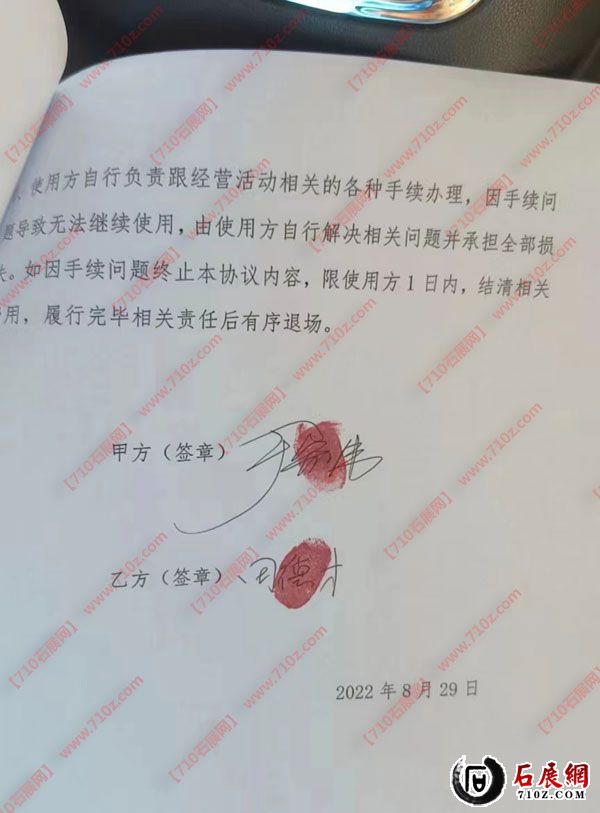 、使用方自行负责跟经营活动相关的各种手续办理，因手续问
题导致无法继续使用，由使用方自行解决相关问题并承担全部损
失。如因手续问题终止本协议内容，限使用方1日内，结清相关
费用，履行完毕相关责任后有序退场。
甲方（签章）
乙方（签章）
2022年8月29日
【710石展网】www.710z.com
石展網
710Z.COM